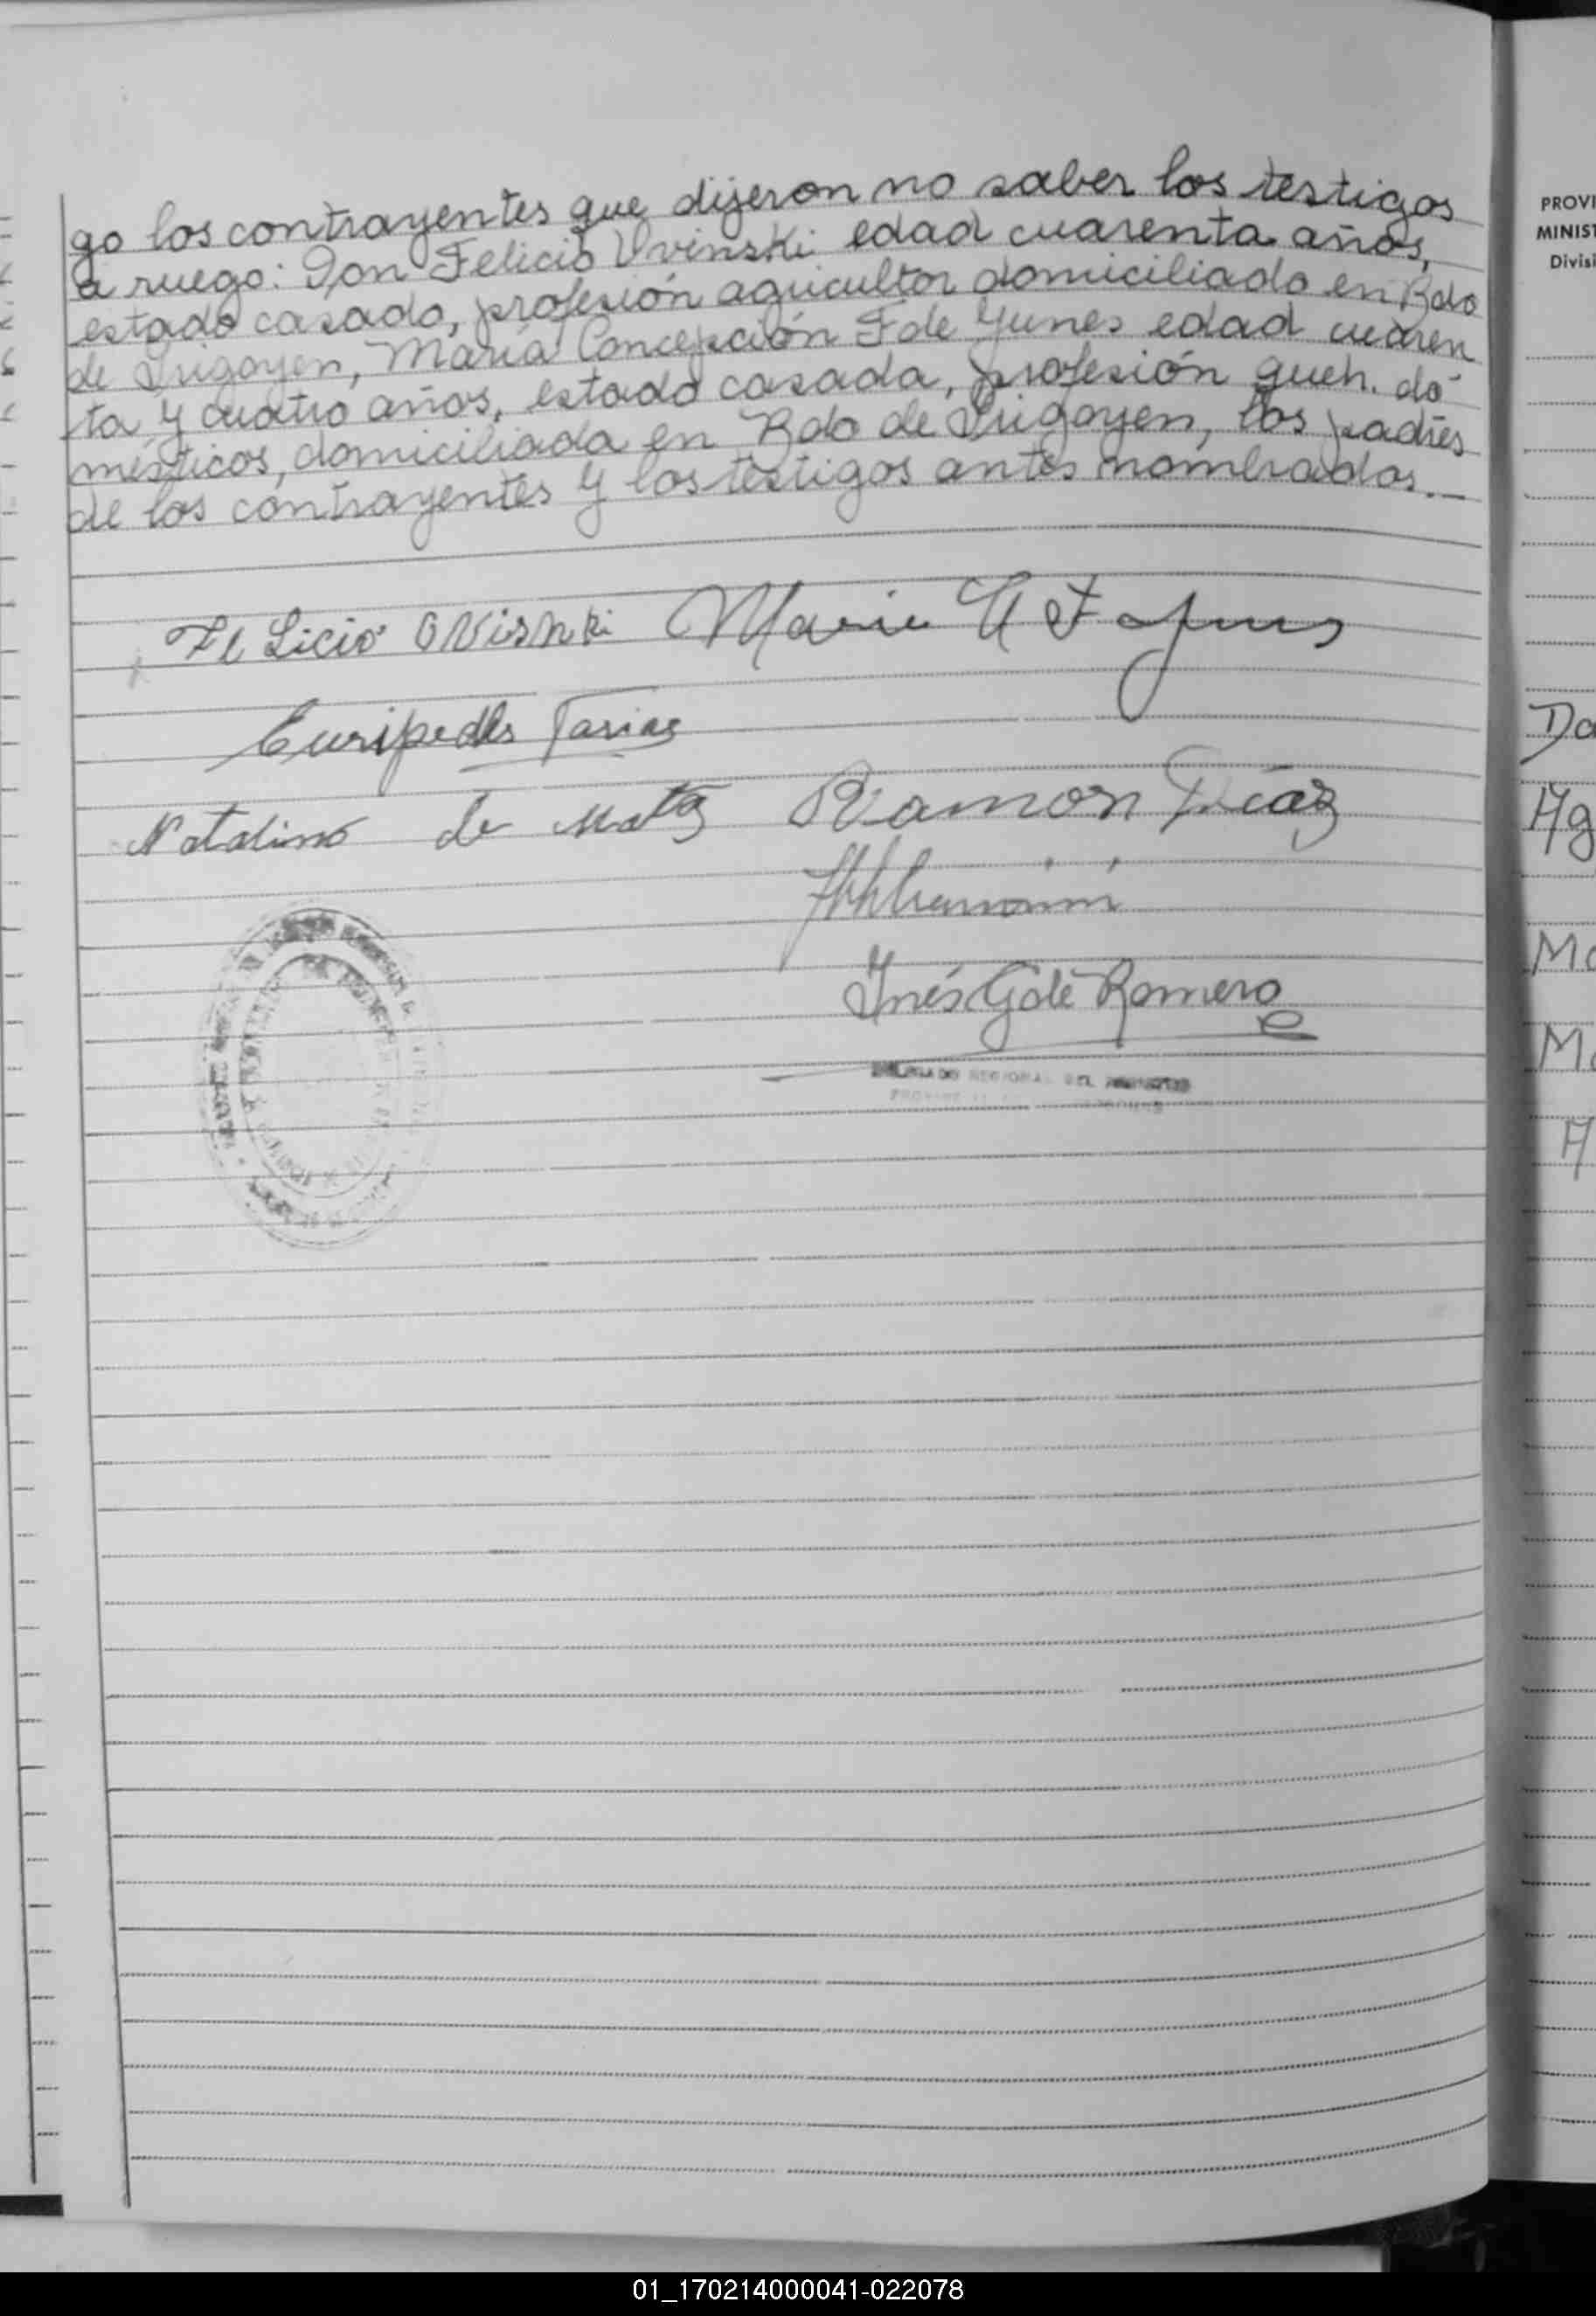 go los contrayentes que dijeron no saber los testigos
a ruego: Don Felicio Uvinski edad cuarenta años,
estado casado, profesión agricultor domiciliado en Bdo
de Irigoyen, María Concepción F de Yunes edad cuaren
ta y cuatro años, estado casada, profesión queh. do
mésticos, domiciliada en Bdo de Irigoyen, los padres
de los contrayentes y los testigos antes nombrados.—
Felicio Ovisnki Maria
Euripedes Farias
Natalino de Mattos Ramon Diaz
Inés G de Romero
DELEGADO REGIONAL DEL
PROVI
MINIST
Divisi
Da
Ag
Ma
Ma
A
01_170214000041-022078